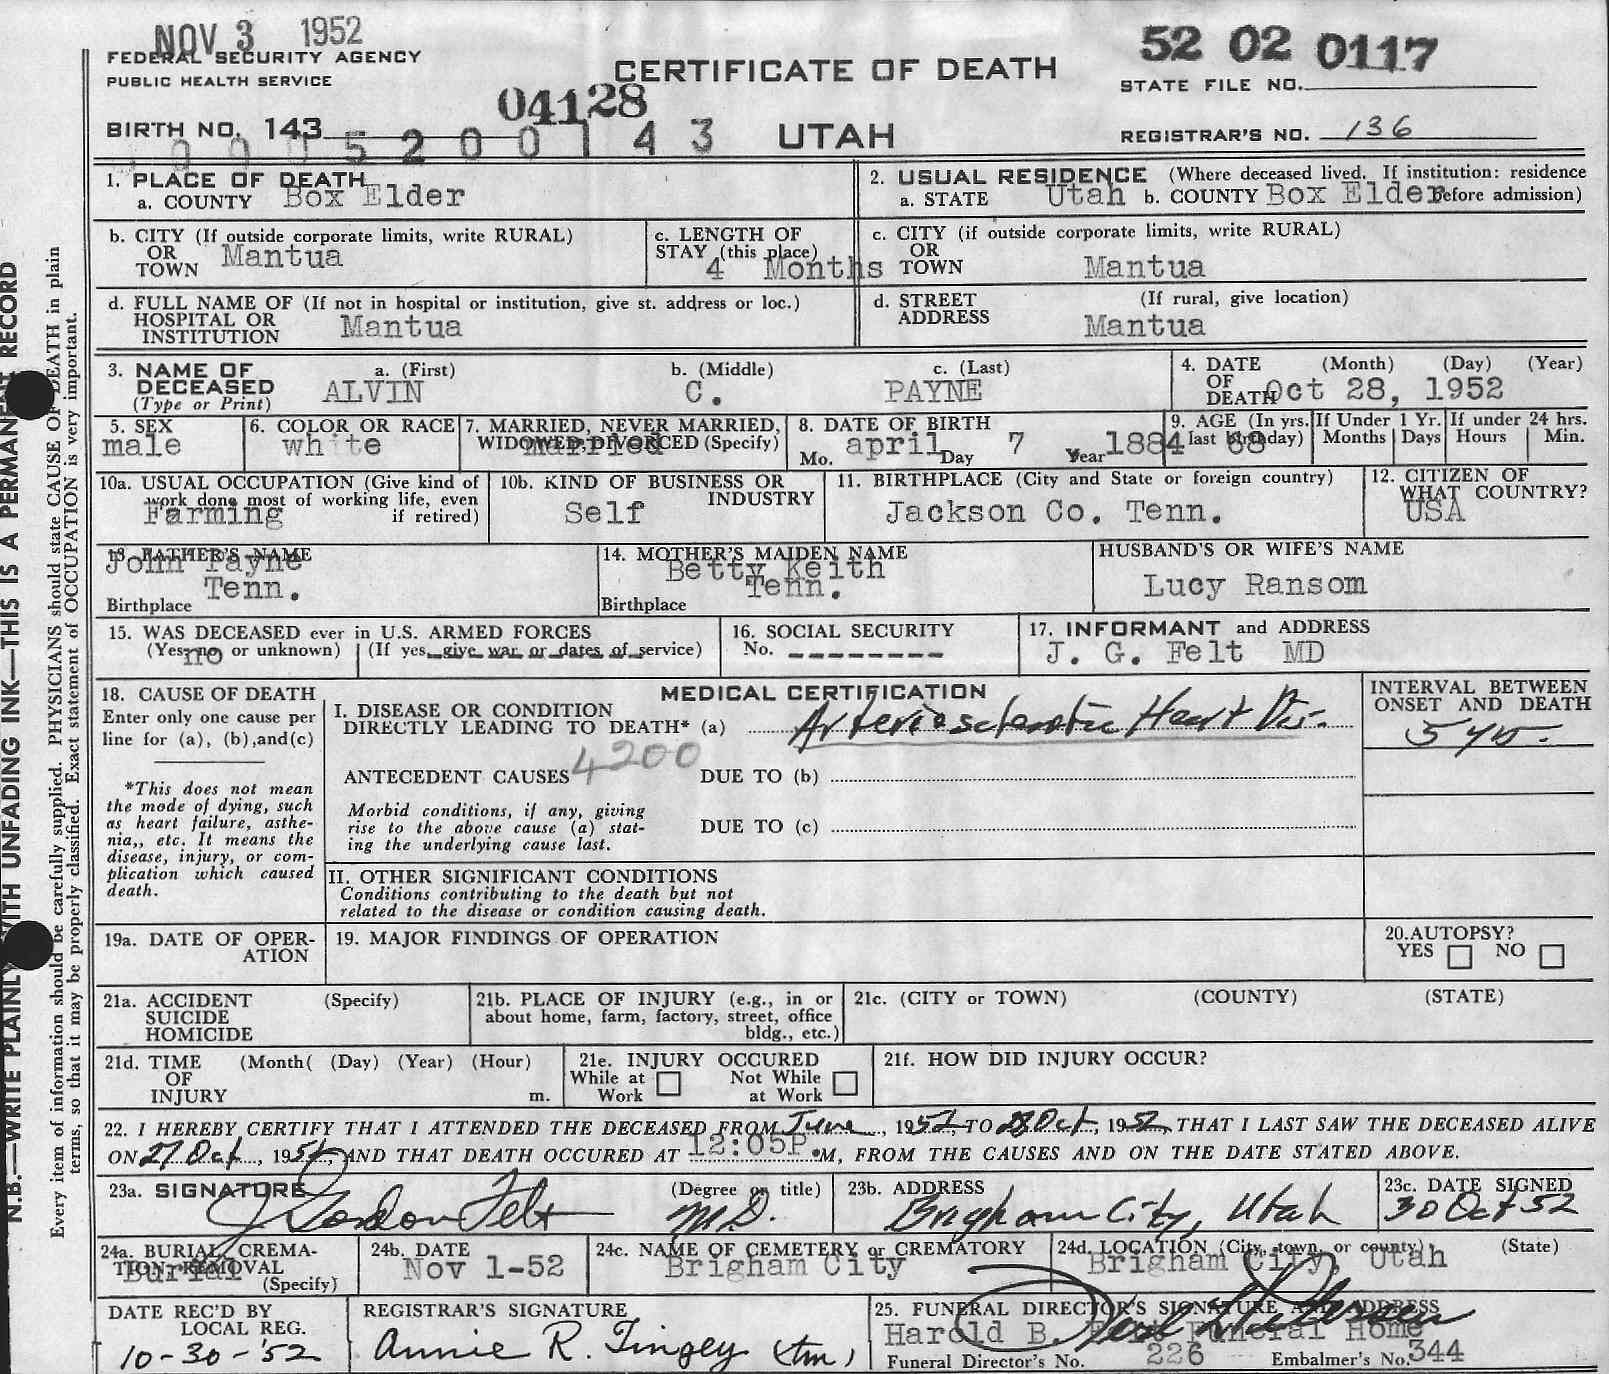 NOV 3 1952
FEDERAL SECURITY AGENCY
PUBLIC HEALTH SERVICE
CERTIFICATE OF DEATH
52 02 0117
STATE FILE NO.
04128
BIRTH NO. 143
0005200143
UTAH
REGISTRAR'S NO. 136
1. PLACE OF DEATH
a. COUNTY Box Elder
2. USUAL RESIDENCE (Where deceased lived. If institution: residence before admission)
a. STATE Utah b. COUNTY Box Elder
b. CITY (If outside corporate limits, write RURAL)
OR TOWN Mantua
c. LENGTH OF STAY (this place)
4 Months
c. CITY (if outside corporate limits, write RURAL)
OR TOWN Mantua
d. FULL NAME OF (If not in hospital or institution, give st. address or loc.)
HOSPITAL OR INSTITUTION Mantua
d. STREET ADDRESS (If rural, give location)
Mantua
3. NAME OF DECEASED (Type or Print)
a. (First) b. (Middle) c. (Last)
ALVIN C. PAYNE
4. DATE OF DEATH (Month) (Day) (Year)
Oct 28, 1952
5. SEX
male
6. COLOR OR RACE
white
7. MARRIED, NEVER MARRIED, WIDOWED, DIVORCED (Specify)
married
8. DATE OF BIRTH
Mo. april Day 7 Year 1884
9. AGE (In yrs. last birthday)
68
If Under 1 Yr. Months Days
If under 24 hrs. Hours Min.
10a. USUAL OCCUPATION (Give kind of work done most of working life, even if retired)
Farming
10b. KIND OF BUSINESS OR INDUSTRY
Self
11. BIRTHPLACE (City and State or foreign country)
Jackson Co. Tenn.
12. CITIZEN OF WHAT COUNTRY?
USA
13. FATHER'S NAME
John Payne
Birthplace Tenn.
14. MOTHER'S MAIDEN NAME
Betty Keith
Birthplace Tenn.
HUSBAND'S OR WIFE'S NAME
Lucy Ransom
15. WAS DECEASED ever in U.S. ARMED FORCES
(Yes, no or unknown) (If yes, give war or dates of service)
no
16. SOCIAL SECURITY
No. --------
17. INFORMANT and ADDRESS
J. G. Felt MD
18. CAUSE OF DEATH
Enter only one cause per line for (a), (b), and (c)
*This does not mean
the mode of dying, such
as heart failure, asthe-
nia,, etc. It means the
disease, injury, or com-
plication which caused
death.
MEDICAL CERTIFICATION
I. DISEASE OR CONDITION
DIRECTLY LEADING TO DEATH* (a) Arteriosclerotic Heart Dis.
INTERVAL BETWEEN ONSET AND DEATH
5 yrs.
ANTECEDENT CAUSES 4200 DUE TO (b)
Morbid conditions, if any, giving
rise to the above cause (a) stat-
ing the underlying cause last.
DUE TO (c)
II. OTHER SIGNIFICANT CONDITIONS
Conditions contributing to the death but not
related to the disease or condition causing death.
19a. DATE OF OPER-
ATION
19. MAJOR FINDINGS OF OPERATION
20. AUTOPSY?
YES NO
21a. ACCIDENT (Specify)
SUICIDE
HOMICIDE
21b. PLACE OF INJURY (e.g., in or
about home, farm, factory, street, office
bldg., etc.)
21c. (CITY or TOWN) (COUNTY) (STATE)
21d. TIME (Month( (Day) (Year) (Hour)
OF
INJURY m.
21e. INJURY OCCURED
While at Work Not While at Work
21f. HOW DID INJURY OCCUR?
22. I HEREBY CERTIFY THAT I ATTENDED THE DECEASED FROM June, 1952, TO 28 Oct, 1952, THAT I LAST SAW THE DECEASED ALIVE
ON 27 Oct, 1952, AND THAT DEATH OCCURED AT 12:05P.M, FROM THE CAUSES AND ON THE DATE STATED ABOVE.
23a. SIGNATURE (Degree or title)
J Gordon Felt M.D.
23b. ADDRESS
Brigham City, Utah
23c. DATE SIGNED
30 Oct 52
24a. BURIAL, CREMA-
TION, REMOVAL (Specify)
Burial
24b. DATE
Nov 1-52
24c. NAME OF CEMETERY or CREMATORY
Brigham City
24d. LOCATION (City, town, or county) (State)
Brigham City, Utah
DATE REC'D BY LOCAL REG.
10-30-'52
REGISTRAR'S SIGNATURE
Annie R. Tingey (tm)
25. FUNERAL DIRECTOR'S SIGNATURE AND ADDRESS
Harold B. Funeral Home
Funeral Director's No. 226 Embalmer's No. 344
N.B.—WRITE PLAINLY WITH UNFADING INK—THIS IS A PERMANENT RECORD
Every item of information should be carefully supplied. PHYSICIANS should state CAUSE OF DEATH in plain
terms, so that it may be properly classified. Exact statement of OCCUPATION is very important.